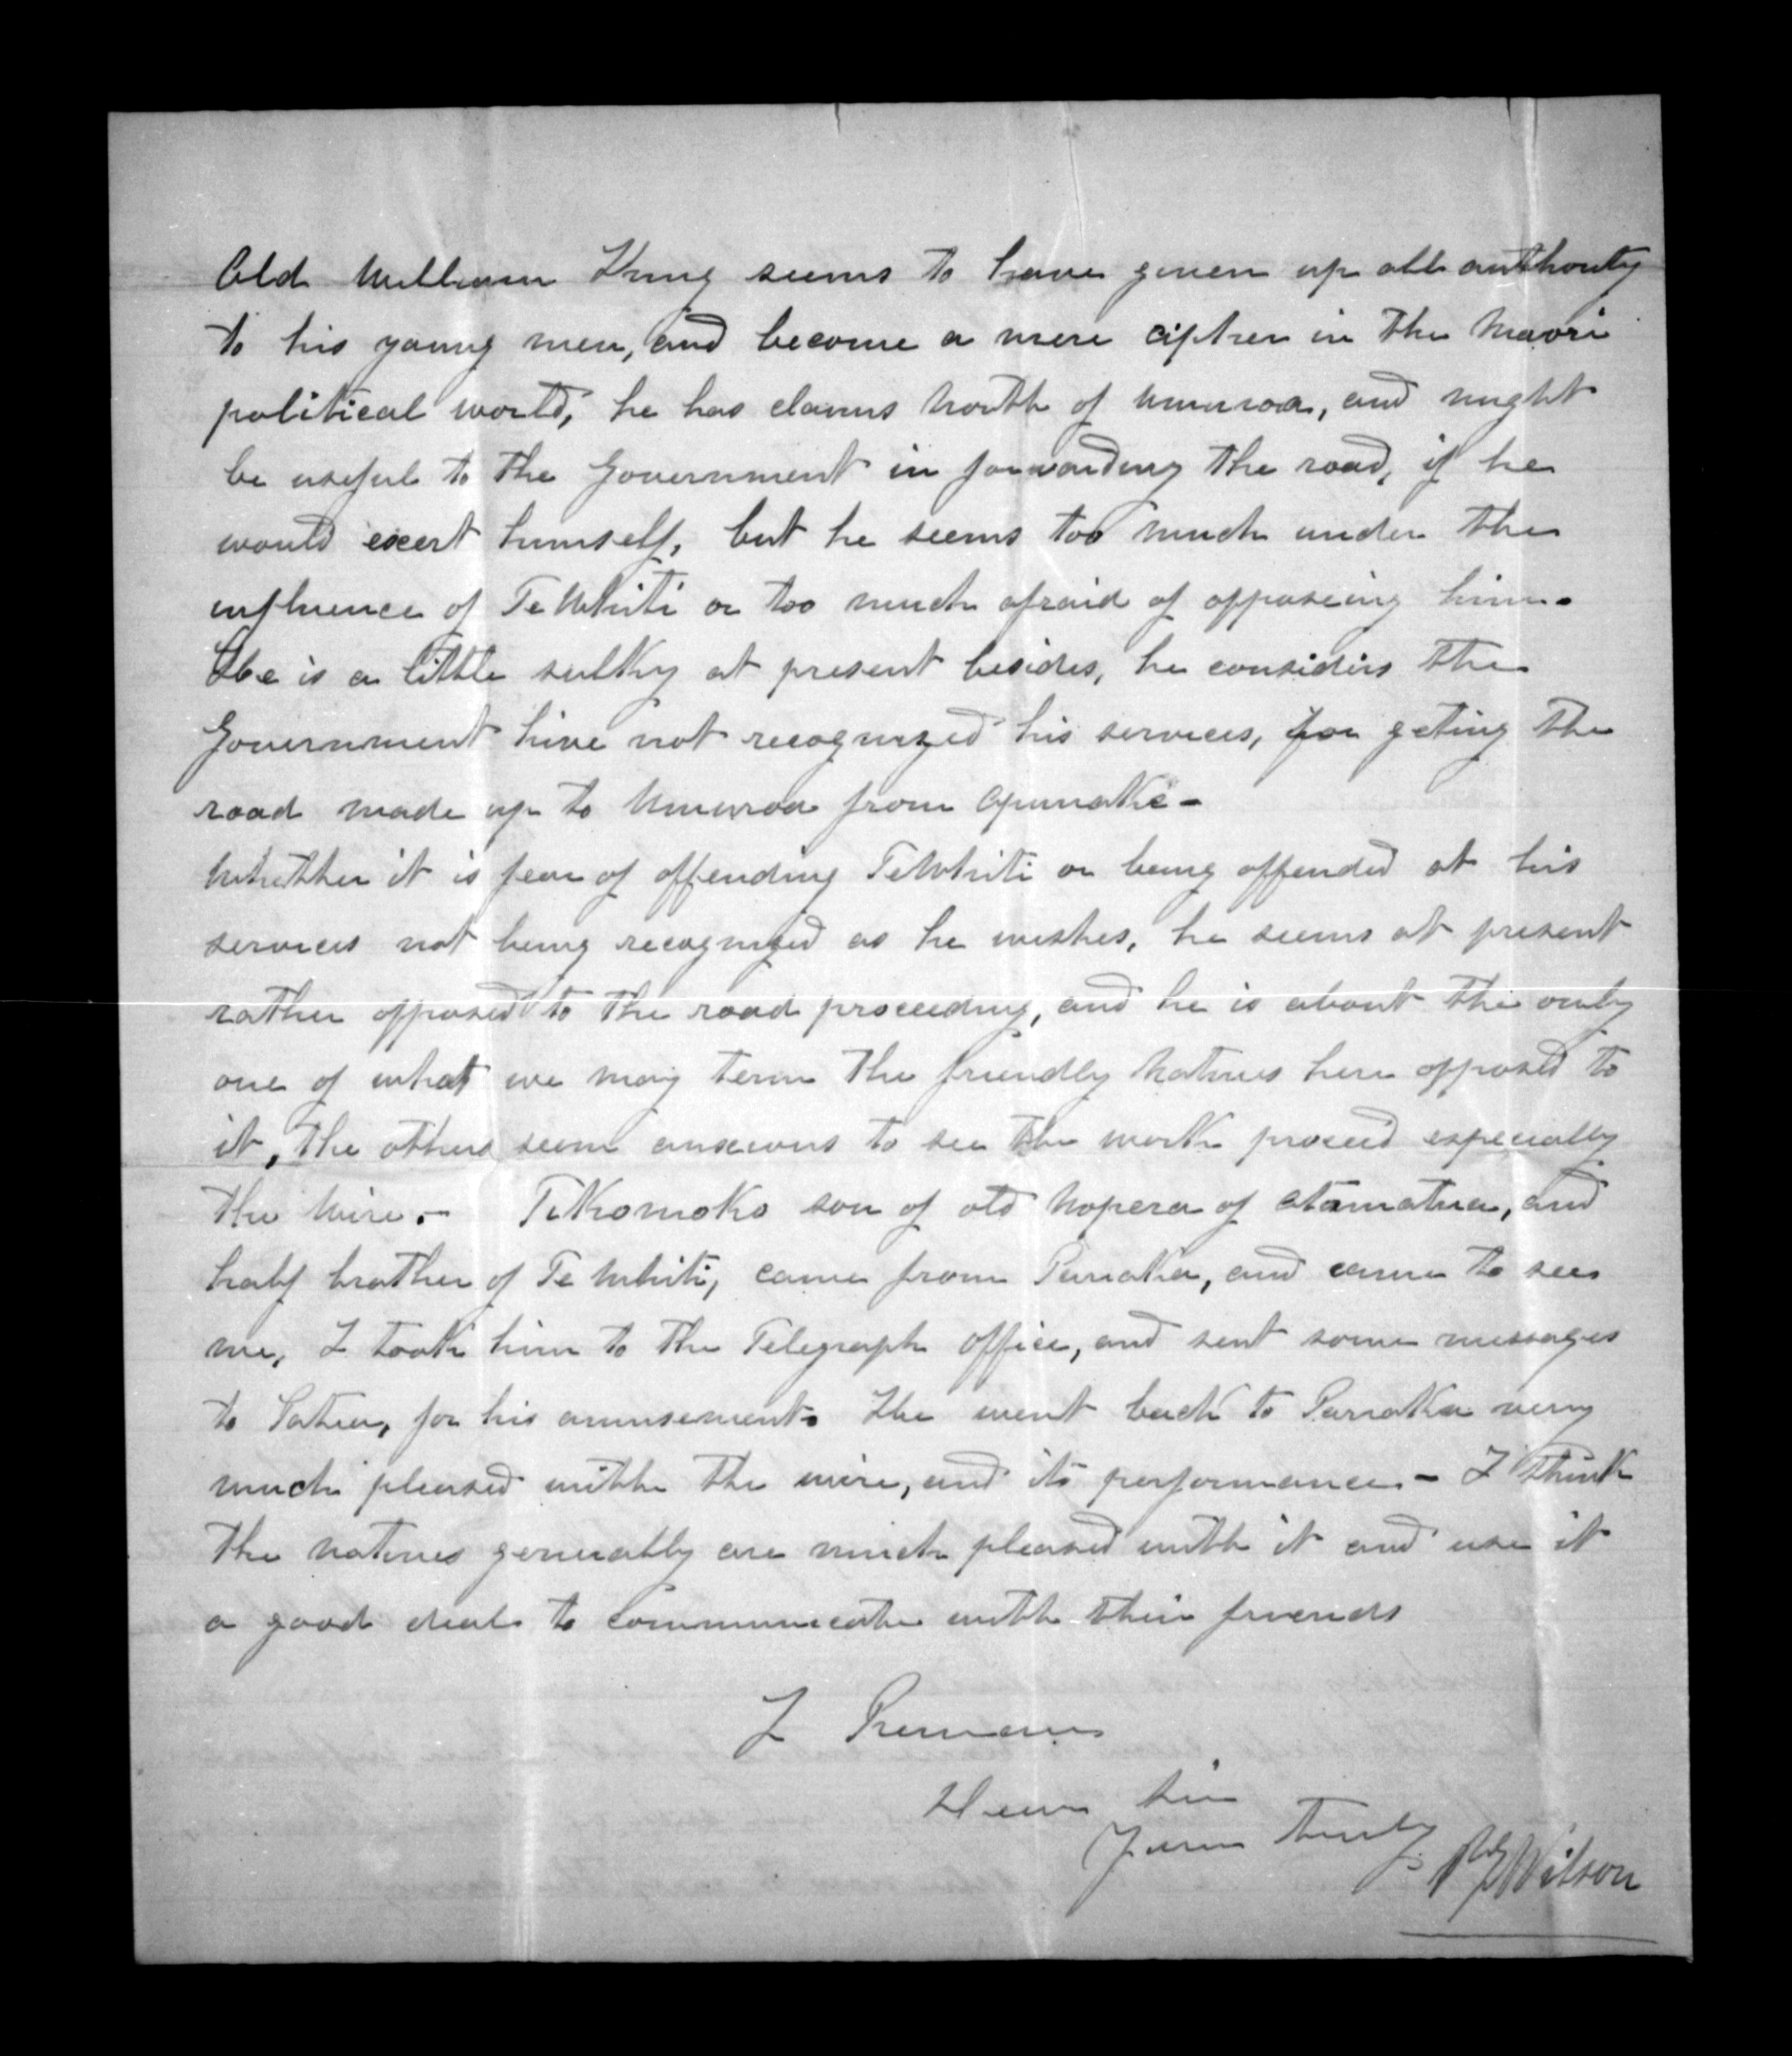 Old William King seems to have given up all authority
to his young men, and become a mere cipher in the Maori
political world, he has claims North of Umuroa, and might
be useful to the Government in forwarding the road, if he
would exert himself, but he seems too much under the
influence of TeWhiti or too much afraid of opposeing him.
He is a little sulky at present besides, he considers the
Government have not recognized his services, for geting the
road made up to Umuroa from Opunake -
Whether it is fear of offending TeWhiti or being offended at his
services not being recognized as he wishes, he seems at present
rather opposed to the road proceeding, and he is about the only
one of what we may term the friendly Natives here opposed to
it, the others seem anxious to see the work proceed especially
the Wire. - TeKomoko son of old Nopera of Otamatua, and
half brother of Te Whiti, came from Parraka, and came to see
me, I took him to the Telegraph Office, and sent some messages
to Patea, for his amusement. He went back to Parraka very
much pleased with the wire, and its performance. - I think
the natives generally are much pleased with it and use it
a good deal to communicate with their friends
I Remain
Dear Sir
Yours truly
Wilson